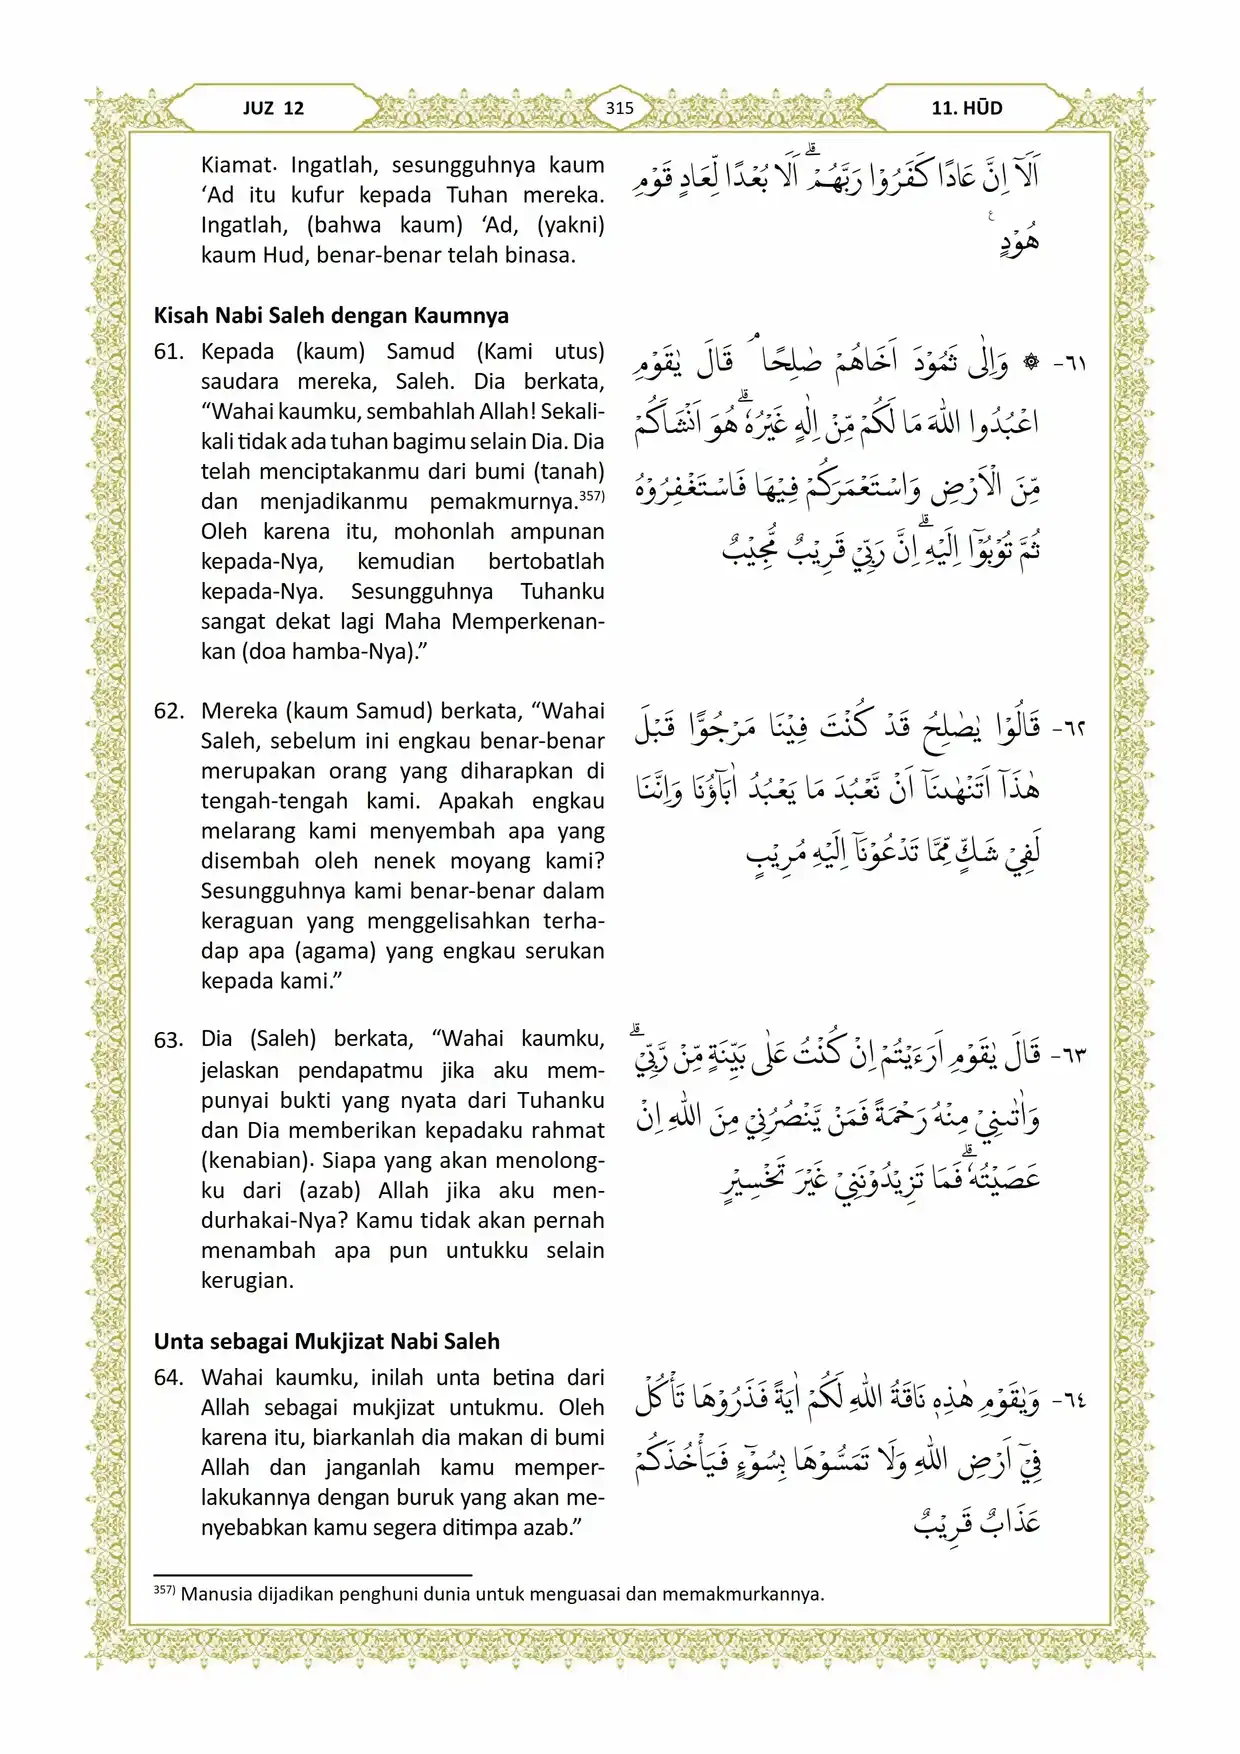 JUZ 12
315
11. HŪD
Kiamat. Ingatlah, sesungguhnya kaum
‘Ad itu kufur kepada Tuhan mereka.
Ingatlah, (bahwa kaum) ‘Ad, (yakni)
kaum Hud, benar-benar telah binasa.
اَلَآ اِنَّ عَادًا كَفَرُوْا رَبَّهُمْ ۗ اَلَا بُعْدًا لِّعَادٍ قَوْمِ
هُوْدٍ ࣖ
Kisah Nabi Saleh dengan Kaumnya
61. Kepada (kaum) Samud (Kami utus)
saudara mereka, Saleh. Dia berkata,
“Wahai kaumku, sembahlah Allah! Sekali-
kali tidak ada tuhan bagimu selain Dia. Dia
telah menciptakanmu dari bumi (tanah)
dan menjadikanmu pemakmurnya.357)
Oleh karena itu, mohonlah ampunan
kepada-Nya, kemudian bertobatlah
kepada-Nya. Sesungguhnya Tuhanku
sangat dekat lagi Maha Memperkenan-
kan (doa hamba-Nya).”
٦١- ۞ وَاِلٰى ثَمُوْدَ اَخَاهُمْ صٰلِحًا ۘ قَالَ يٰقَوْمِ
اعْبُدُوا اللّٰهَ مَا لَكُمْ مِّنْ اِلٰهٍ غَيْرُهٗ ۗ هُوَ اَنْشَاَكُمْ
مِّنَ الْاَرْضِ وَاسْتَعْمَرَكُمْ فِيْهَا فَاسْتَغْفِرُوْهُ
ثُمَّ تُوْبُوْٓا اِلَيْهِ ۗ اِنَّ رَبِّيْ قَرِيْبٌ مُّجِيْبٌ
62. Mereka (kaum Samud) berkata, “Wahai
Saleh, sebelum ini engkau benar-benar
merupakan orang yang diharapkan di
tengah-tengah kami. Apakah engkau
melarang kami menyembah apa yang
disembah oleh nenek moyang kami?
Sesungguhnya kami benar-benar dalam
keraguan yang menggelisahkan terha-
dap apa (agama) yang engkau serukan
kepada kami.”
٦٢- قَالُوْا يٰصٰلِحُ قَدْ كُنْتَ فِيْنَا مَرْجُوًّا قَبْلَ
هٰذَآ اَتَنْهٰىنَآ اَنْ نَّعْبُدَ مَا يَعْبُدُ اٰبَاۤؤُنَا وَاِنَّنَا
لَفِيْ شَكٍّ مِّمَّا تَدْعُوْنَآ اِلَيْهِ مُرِيْبٍ
63. Dia (Saleh) berkata, “Wahai kaumku,
jelaskan pendapatmu jika aku mem-
punyai bukti yang nyata dari Tuhanku
dan Dia memberikan kepadaku rahmat
(kenabian). Siapa yang akan menolong-
ku dari (azab) Allah jika aku men-
durhakai-Nya? Kamu tidak akan pernah
menambah apa pun untukku selain
kerugian.
٦٣- قَالَ يٰقَوْمِ اَرَءَيْتُمْ اِنْ كُنْتُ عَلٰى بَيِّنَةٍ مِّنْ رَّبِّيْ ۗ
وَاٰتٰىنِيْ مِنْهُ رَحْمَةً فَمَنْ يَّنْصُرُنِيْ مِنَ اللّٰهِ اِنْ
عَصَيْتُهٗ ۗ فَمَا تَزِيْدُوْنَنِيْ غَيْرَ تَخْسِيْرٍ
Unta sebagai Mukjizat Nabi Saleh
64. Wahai kaumku, inilah unta betina dari
Allah sebagai mukjizat untukmu. Oleh
karena itu, biarkanlah dia makan di bumi
Allah dan janganlah kamu memper-
lakukannya dengan buruk yang akan me-
nyebabkan kamu segera ditimpa azab.”
٦٤- وَيٰقَوْمِ هٰذِهٖ نَاقَةُ اللّٰهِ لَكُمْ اٰيَةً فَذَرُوْهَا تَأْكُلْ
فِيْٓ اَرْضِ اللّٰهِ وَلَا تَمَسُّوْهَا بِسُوْۤءٍ فَيَأْخُذَكُمْ
عَذَابٌ قَرِيْبٌ
357) Manusia dijadikan penghuni dunia untuk menguasai dan memakmurkannya.